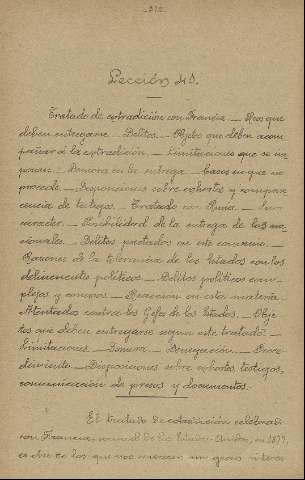 Lección 40.
Tratado de extradición con Francia. — Reos que
deben entregarse. — Delitos. — Objetos que deben acom
pañar á la extradición. — Limitaciones que se im
ponen. — Demora en la entrega. — Casos en que no
procede. — Disposiciones sobre exhortos y compare
cencia de testigos. — Tratado con Rusia. — Su
caracter. — de la entrega de los na
cionales. — Delitos pactados en este convenio. —
Razones de la tolerancia de los Estados con los
delincuentes políticos. — Delitos políticos com
plejos y conexos. — Reaccion en esta materia. —
Atentados contra los Gefes de los Estados. — Obje
tos que deben entregarse segun este tratado. —
Limitaciones. — Demora. — Denegación. — Proce
dimiento. — Disposiciones sobre exhortos, testigos,
comunicación de presos y documentos.
El tratado de extradición celebrado
con Francia, en 1877,
es otro de los que nos merecen un gran interes